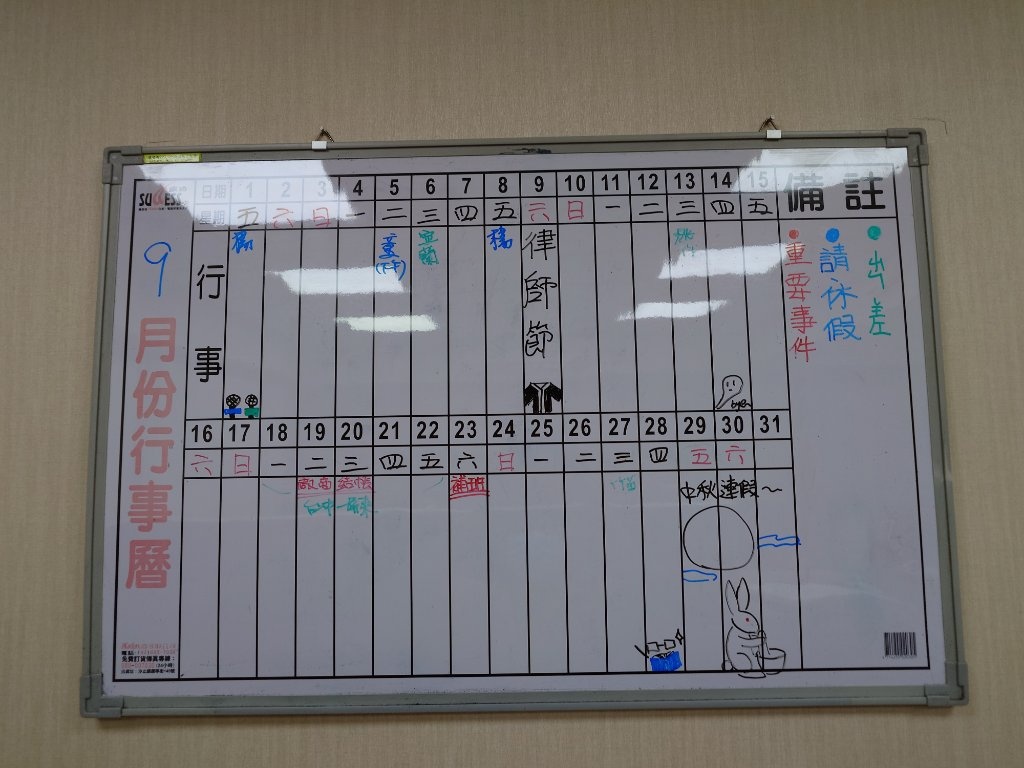 SUCCESS
日期 1 2 3 4 5 6 7 8 9 10 11 12 13 14 15 備註
星期 五 六 日 一 二 三 四 五 六 日 一 二 三 四 五
9月份行事曆
行事
宜蘭
律師節
重要事件
請休假
出差
16 17 18 19 20 21 22 23 24 25 26 27 28 29 30 31
六 日 一 二 三 四 五 六 日 一 二 三 四 五 六
補班
中秋連假~
免費訂貨傳真專線：